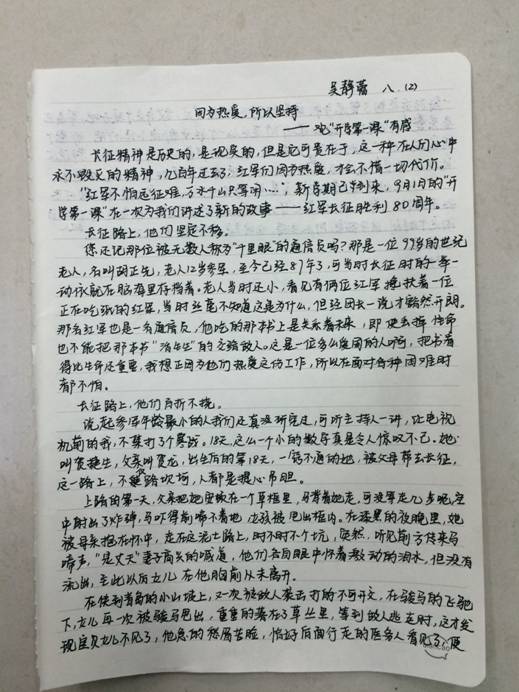 吴静蕾 八.(2)
因为热爱,所以坚持
——观“开学第一课”有感
长征精神是历史的,是现实的,但是它可贵在于,这一种在人们心中
永不毁灭的精神,几百年过去了;红军们因为热爱,才会不惜一切代价。
“红军不怕远征难,万水千山只等闲……”,新学期已到来,9月1日的“开
学第一课”在一次为我们讲述了新的故事——红军长征胜利80周年。
长征路上,他们坚定不移。
您还记那位被无数人称为“千里眼”的通信员吗?那是一位99岁的世纪
老人,名叫胡正先,老人12岁参军,至今已经87年了,可当时长征时的一举一
动依就在脑海里存档着。老人当时还小,看见有俩位红军搀扶着一位
正在吃纸的红军,当时丝毫不知道这是为什么,但经团长一说才豁然开朗。
那名红军也是一名通信员,他吃的那本书上是关系着未来,即使去掉性命
也不能把那本书“活生生”的交给敌人。这是一位多么爱国的人啊,把书看
得比生命还重要,我想正因为他们热爱这份工作,所以在面对各种困难时
都不怕。
长征路上,他们百折不挠。
说起参军年龄最小的人我们还真没研究过,可听主持人一讲,让电视
机前的我,不禁打了个寒战。18天,这么一个小的数字真是令人惊叹不已。她
叫贺捷生,父亲叫贺龙,出生后的第18天,一窍不通的她,被父母带去长征,
这一路上,不算路坎坷,人都是提心吊胆。
上路的第一天,父亲把她安放在一个草框里,马背着她走,可没等走几步呢,空
中射出了炸弹,马吓得前啼不着地 边孩被甩出框内。在漆黑的夜晚里,她
被母亲抱在怀中,走在这泥土路上,时不时不个坑,突然,听见前方传来马
啼声,“是丈夫”妻子高兴的喊道,他们各自眼中怀着激动的泪水,但没有
流出,至此以后女儿在他胸前从未离开。
在快到青岛的小山坡上,又一次被敌人袭击打的不可开交,在骏马的飞驰
下,女儿再一次被骏马甩出,重重的落在了草丛里,等到敌人逃走时,这才发
现宝贝女儿不见了,他急的愁眉苦脸,恰好后面行走的医务人看见了,便